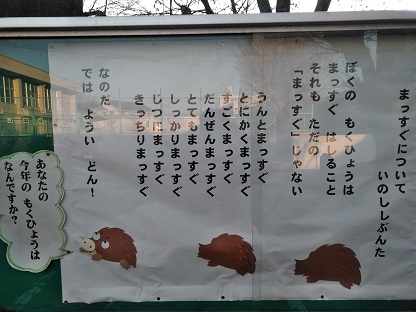 まっすぐについて
いのししぶんた
ぼくの もくひょうは
まっすぐ はしること
それも ただの
「まっすぐ」じゃない
うんとまっすぐ
とにかくまっすぐ
すごくまっすぐ
だんぜんまっすぐ
とてもまっすぐ
しっかりまっすぐ
じつにまっすぐ
きっちりまっすぐ
なのだ
では ようい どん!
あなたの
今年の もくひょうは
なんですか?